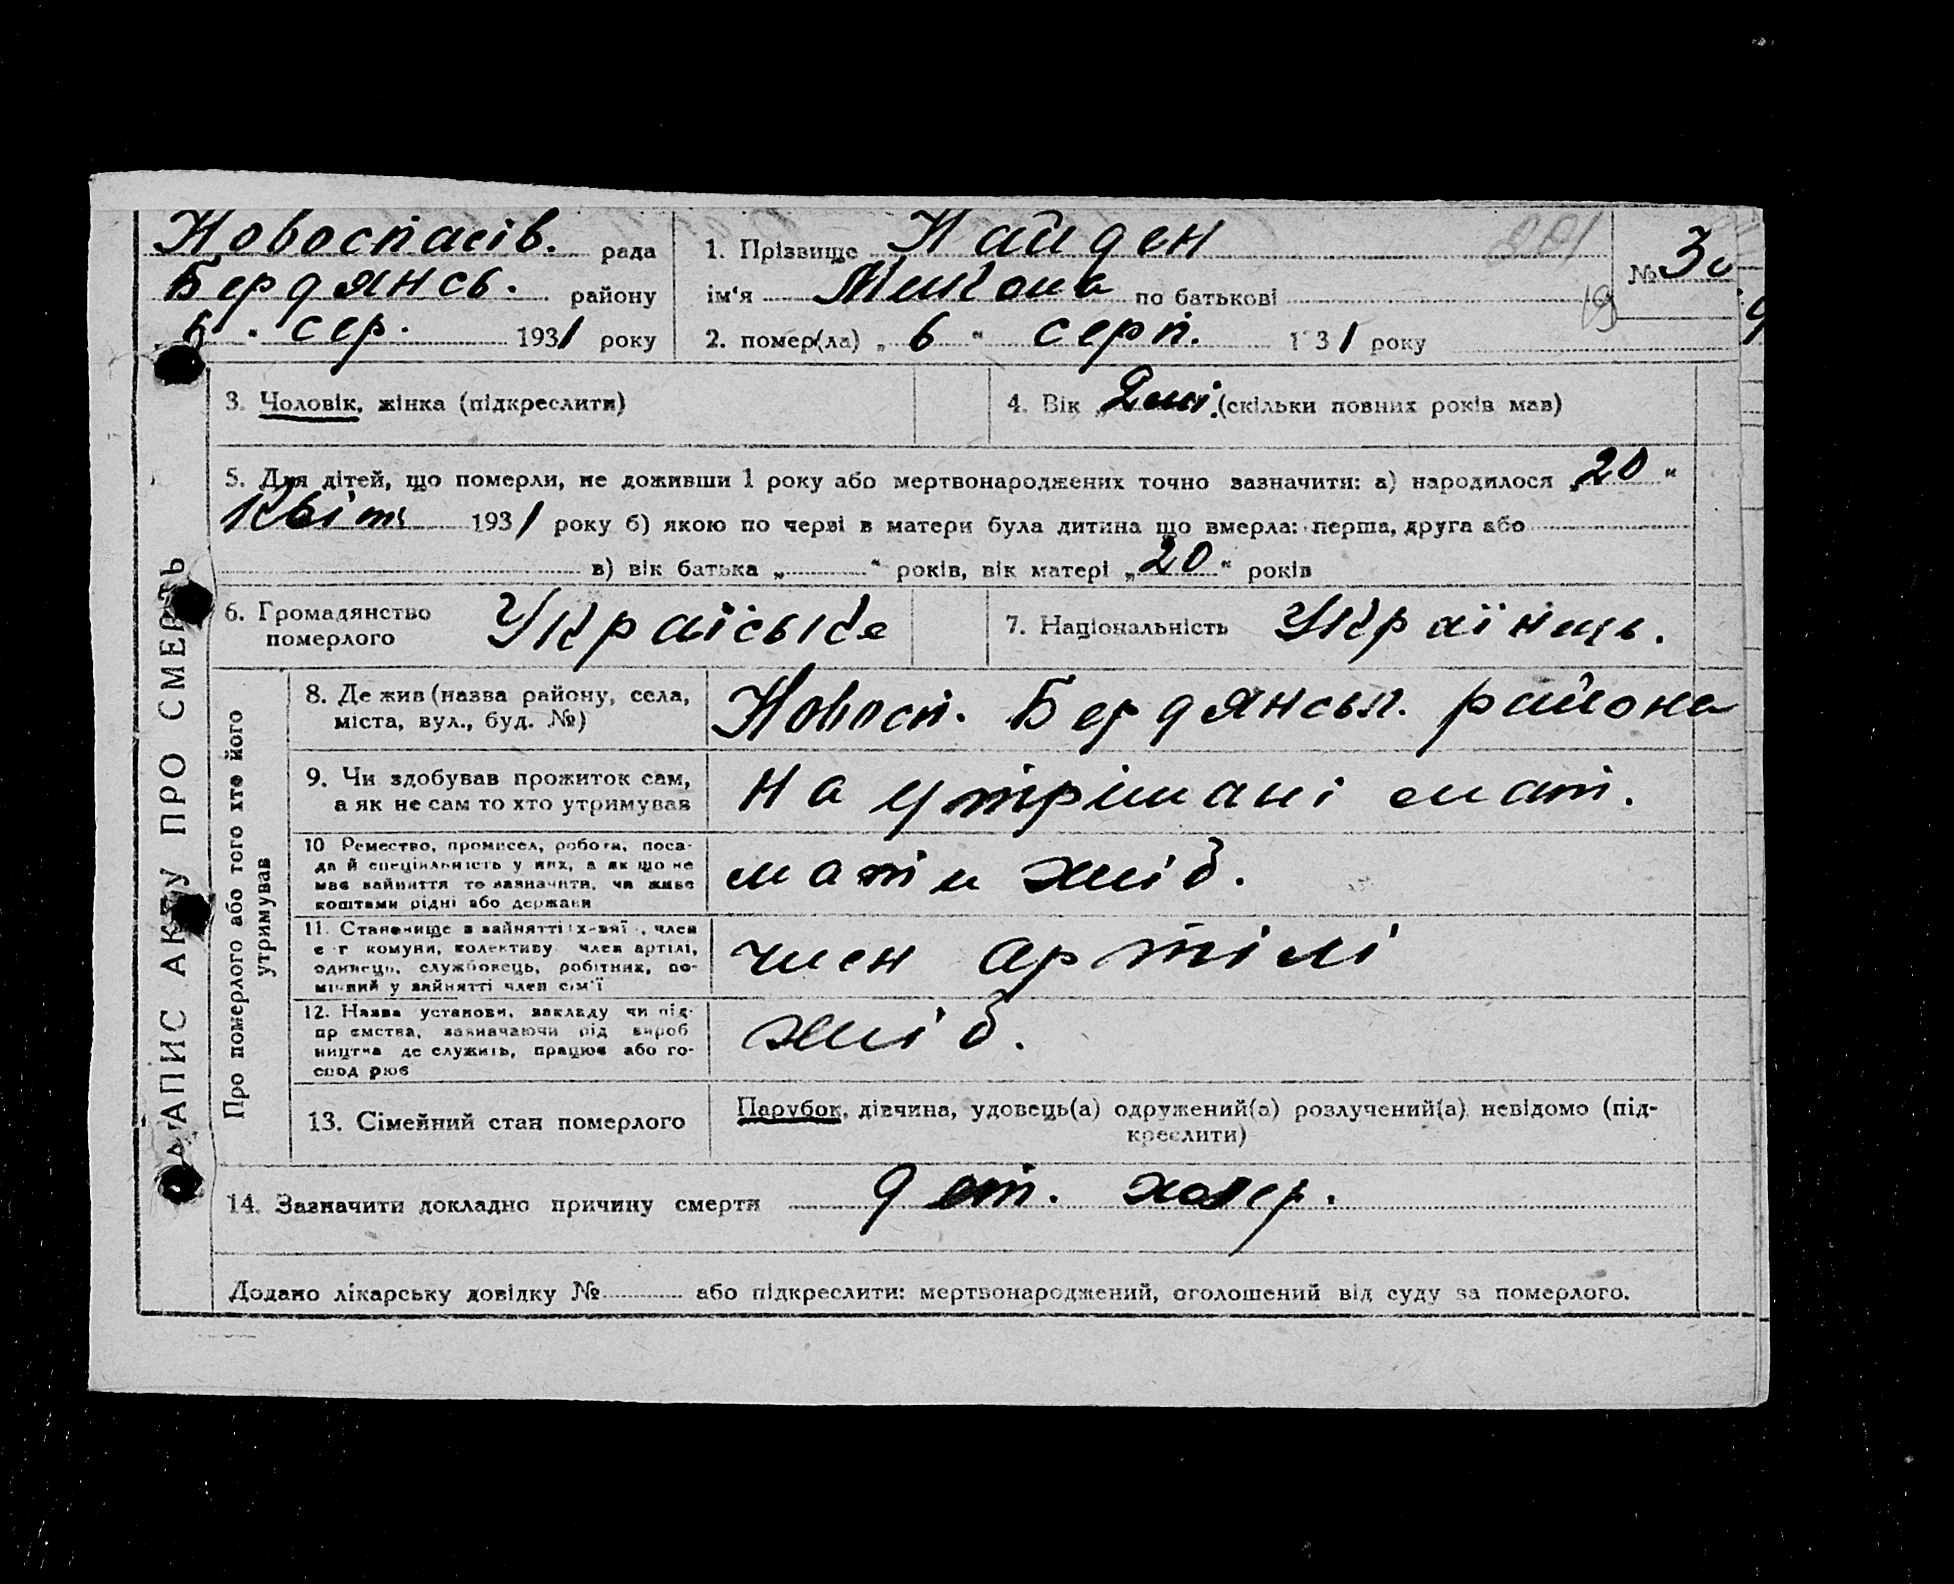 Новоспасів. рада
Бердянсь. району
6 " сер. 1931 року
1. Прізвище Найден
ім'я Микола по батькові
2. помер(ла) „ 6 " серп. 1 31 року
№ 30
ЗАПИС АКТУ ПРО СМЕРТЬ
3. Чоловік, жінка (підкреслити)
4. Вік (скільки повних років мав)
5. Для дітей, що померли, не доживши 1 року або мертвонароджених точно зазначити: а) народилося „20"
Квіт 1931 року б) якою по черві в матери була дитина що вмерла: перша, друга або
в) вік батька „ " років, вік матері „20" років
6. Громадянство
померлого
Україське
7. Національність Українць.
Про померлого або того хто його
утримував
8. Де жив (назва району, села,
міста, вул., буд. №)
Новосп. Бердянськ. района
9. Чи здобував прожиток сам,
а як не сам то хто утримував
на утрімані мат.
10 Ремество, промисел, робота, поса-
да й спеціяльність у них, а як що не
має зайняття то зазначити, чи живе
коштами рідні або держави
мати хліб.
11. Становище в зайнятті член
с г комуни, колективу член артілі,
одинець, службовець, робітник, по-
мічний у зайнятті член сім'ї
член артілі
12. Назва установи, закладу чи під-
пр ємства, зазначаючи рід вироб
ництва де служить, працює або го-
спод рює
хліб.
13. Сімейний стан померлого
Парубок, дівчина, удовець(а) одружений(а) розлучений(а) невідомо (під-
креслити)
14. Зазначити докладно причину смерти дит. холер.
Додано лікарську довідку № або підкреслити: мертвонароджений, оголошений від суду за померлого.